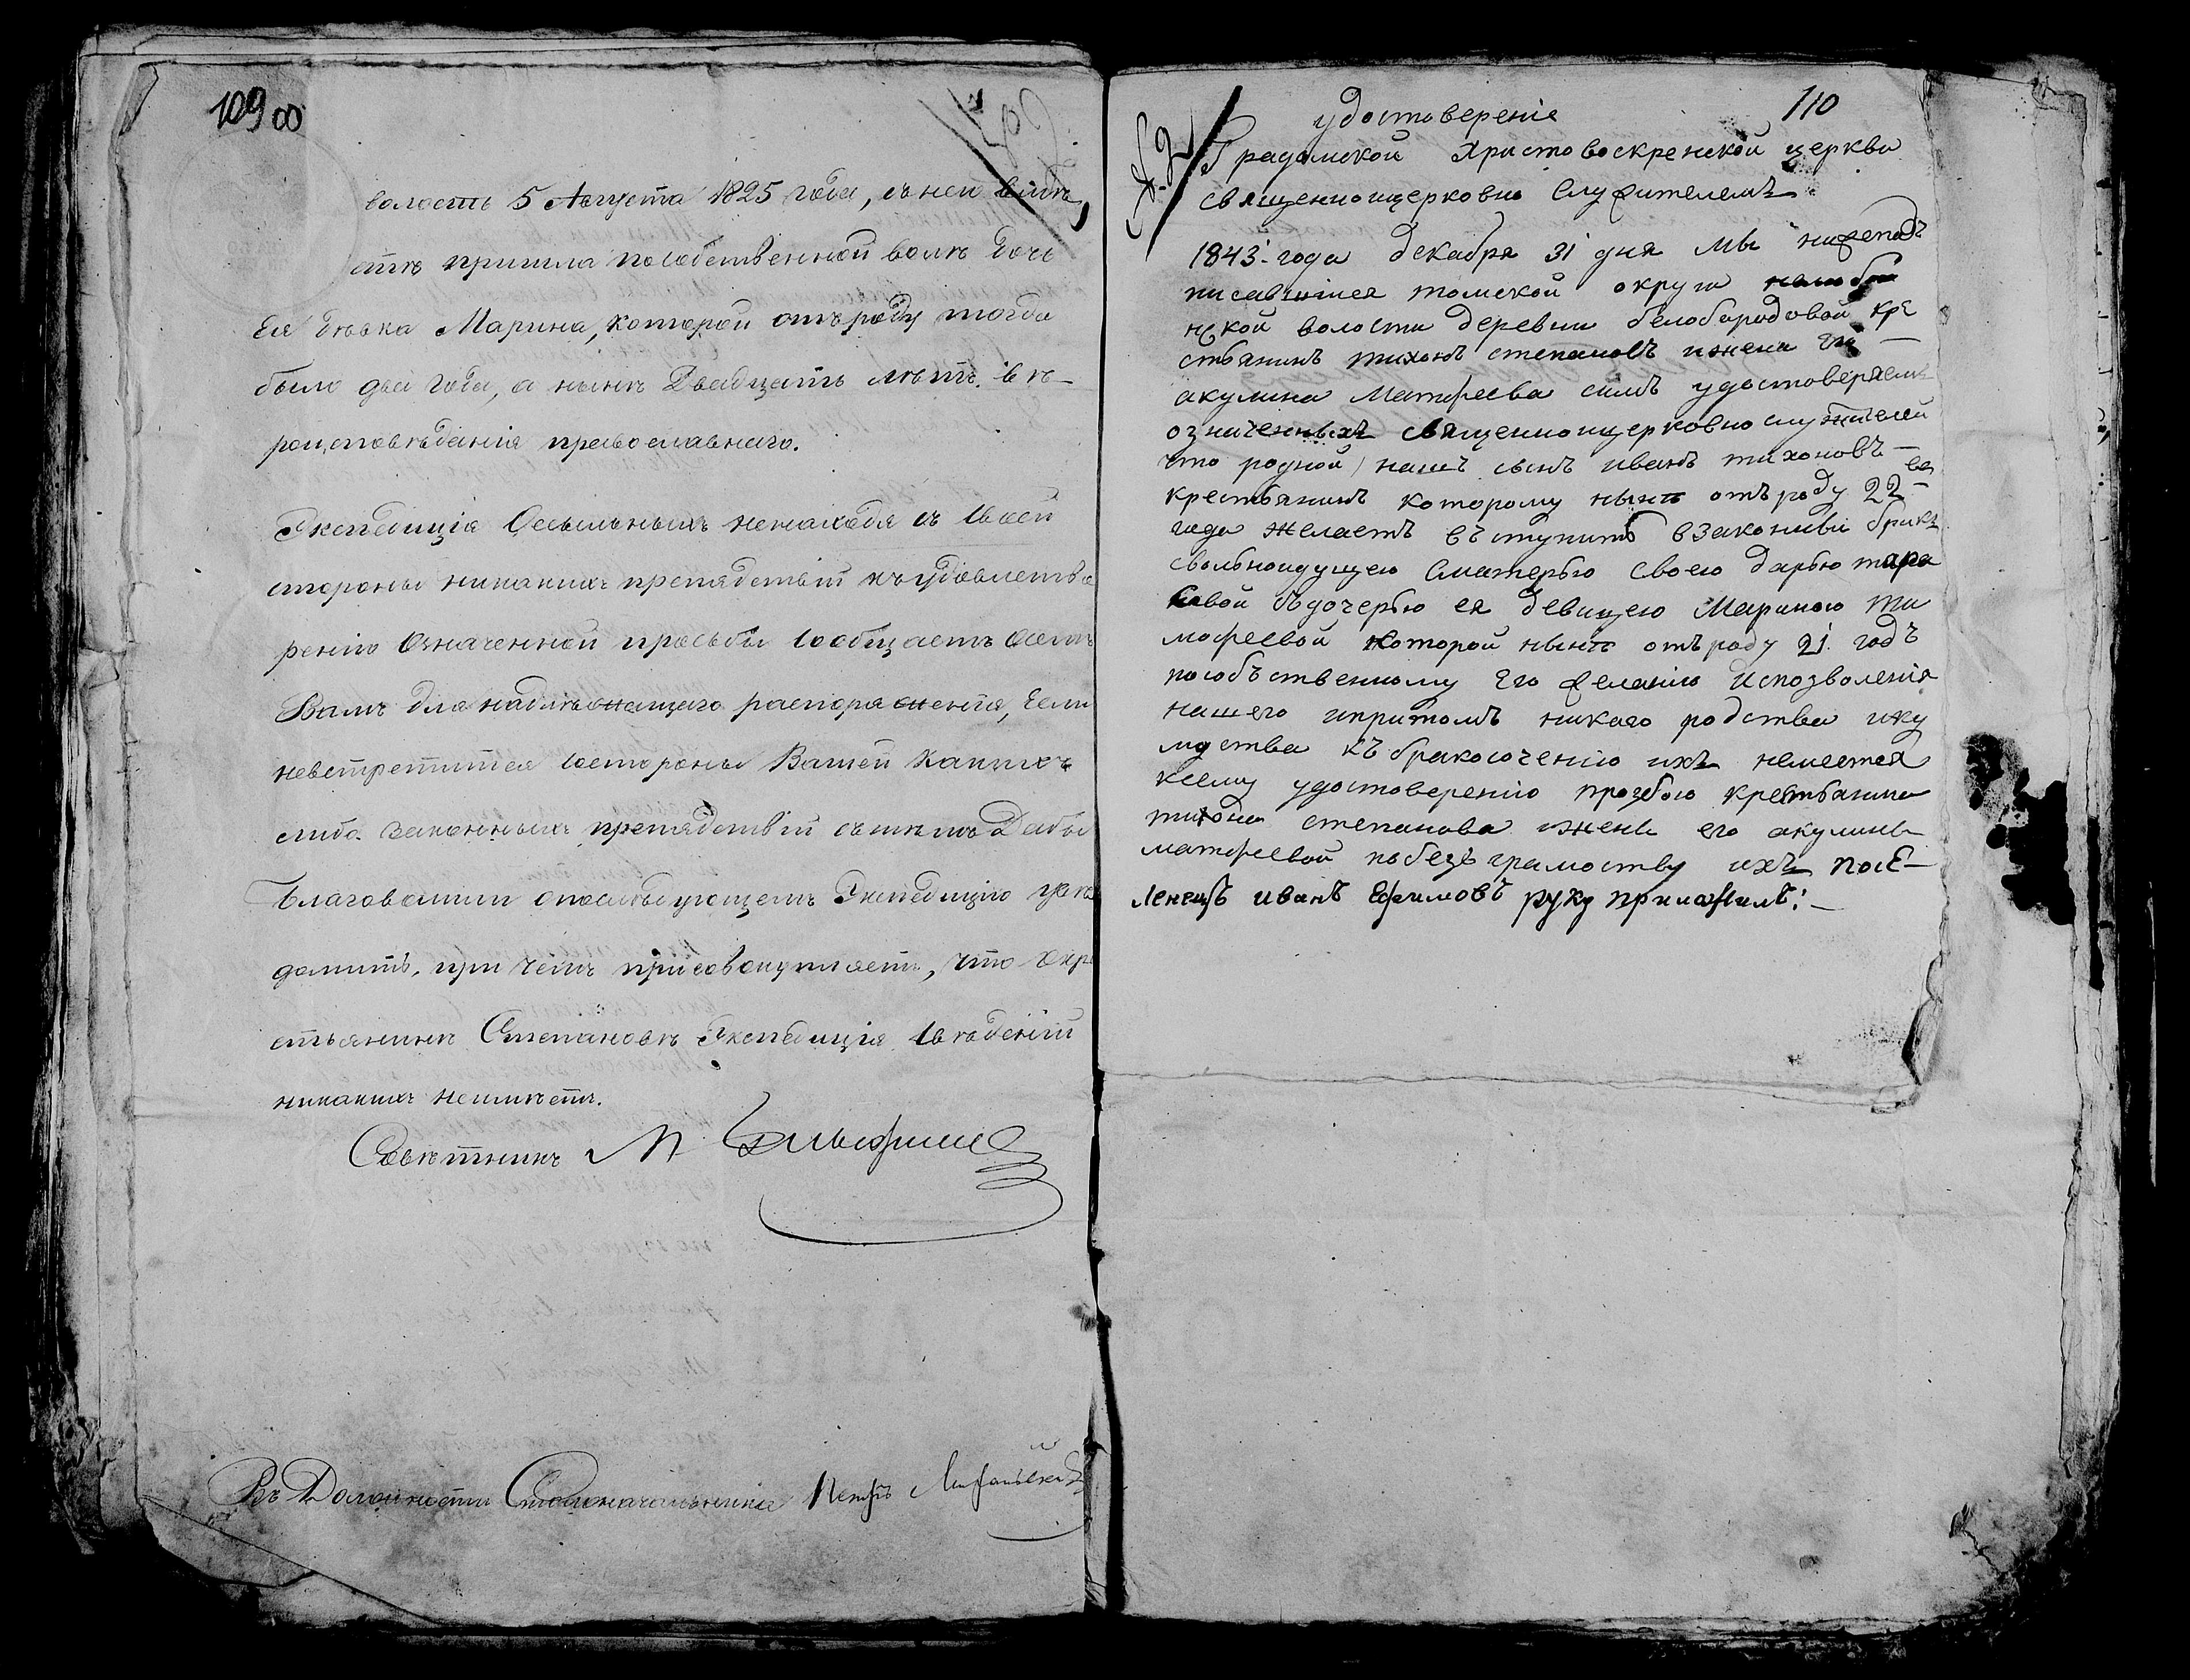 109 об
волость 5 Августа 1825 года, съ ней вмѣ,
стѣ пришла пособственной волѣ дочь
Ея дѣвка Марина, которой отъ роду тогда
было два года, а нынѣ Двадцать лѣтъ. вѣ-
роисповѣданія православнаго.
Экспедиція Ссыльныхъ ненаходя съ своей
стороны никакихъ препядствій къ удовлетво
ренію Означенной просьбы сообщаетъ осемъ
Вамъ для надлежащаго распоряженія, Если
невстретится состороны Вашей какихъ
либо законныхъ препядствій съ тѣмъ Дабы
благоволили опослѣдующемъ Экспедицію увѣ
домить, при чемъ присовокупляетъ, что окре
стьянинѣ Степановѣ Экспедиція Свѣденій
никакихъ неимѣетъ.
Совѣтникъ М
Въ Должности Столоначальника Петръ
110
удостоверенiе
Градомской Христовоскресенской церкви
священноицерковно служителемъ
1843. года декабря 31 дня мы нижепод
писавшiися томской округи
нской волости деревни белобородовой кре
стьянинъ тихонъ степановъ ижена Его —
акулина Матфеева симъ удостоверяемъ
означенныхъ священноицерковнослужителей
что родной нашъ сынъ иванъ тихоновъ —
крестьянинъ которому нынѣ отъ роду 22
года желаетъ въступить взаконный бракъ
свольноидущею Сматерью своею дарью тара
совой съдочерью ея девицею Мариною ти
мофеевой которой нынѣ отъ роду 21. годъ
пособъственному Его желанiю Испозволенiя
нашего ипритомъ никаго родства ику
мовства къ бракосочечению ихъ неместся
ксему удостоверению прозбою крестьянина
тихона степанова ижены его акулины
матфеевой побезъ грамоству ихъ посе—
ленецъ иванъ Ефимовъ руку приложилъ:—